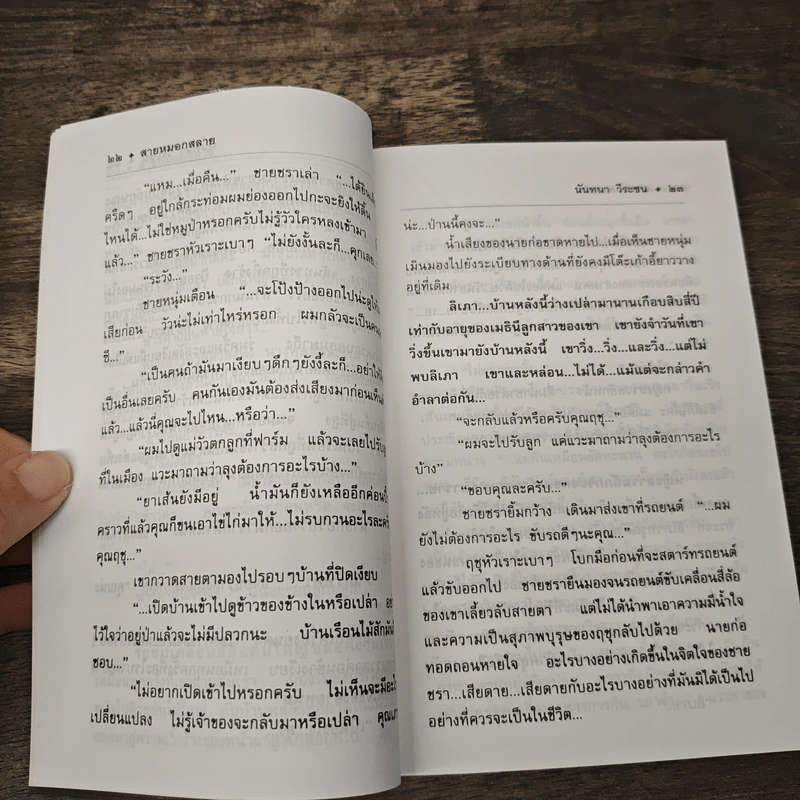 ๒๒ ✦ สายหมอกสลาย
“แหม...เมื่อคืน...” ชายชราเล่า “...ได้ยินเสี
ครืดๆ อยู่ใกล้กระท่อมผมย่องออกไปกะจะยิงให้ดิ้น
ไหนได้...ไม่ใช่หมูป่าหรอกครับไม่รู้วัวใครหลงเข้ามา
แล้ว...” ชายชราหัวเราะเบาๆ “ไม่ยังงั้นละก็...คุกเลย
“ระวัง...”
ชายหนุ่มเตือน “...จะโป้งป้างออกไปน่ะดูให้
เสียก่อน วัวน่ะไม่เท่าไหร่หรอก ผมกลัวจะเป็นคน
ซี...”
“เป็นคนถ้ามันมาเงียบๆดึกๆยังงี้ละก็...อย่าให้
เป็นอื่นเลยครับ คนกันเองมันต้องส่งเสียงมาก่อนเห็น
แล้ว...แล้วนี่คุณจะไปไหน...หรือว่า...”
“ผมไปดูแม่วัวตกลูกที่ฟาร์ม แล้วจะเลยไปรับลู
ที่ในเมือง แวะมาถามว่าลุงต้องการอะไรบ้าง...”
“ยาเส้นยังมีอยู่ น้ำมันก็ยังเหลืออีกค่อน
คราวที่แล้วคุณก็ขนเอาไข่ไก่มาให้...ไม่รบกวนอะไรละครั
คุณฤชุ...”
เขากวาดสายตามองไปรอบๆบ้านที่ปิดเงียบ
“...เปิดบ้านเข้าไปดูข้าวของข้างในหรือเปล่า อย
ไว้ใจว่าอยู่ป่าแล้วจะไม่มีปลวกนะ บ้านเรือนไม้สักมัน
ชอบ...”
“ไม่อยากเปิดเข้าไปหรอกครับ ไม่เห็นจะมีอะไ
เปลี่ยนแปลง ไม่รู้เจ้าของจะกลับมาหรือเปล่า
นันทนา วีระชน ✦ ๒๓
น่ะ...ป่านนี้คงจะ...”
น้ำเสียงของนายก่อขาดหายไป...เมื่อเห็นชายหนุ่ม
เมินมองไปยังระเบียบทางด้านที่ยังคงมีโต๊ะเก้าอี้ยาววาง
อยู่ที่เดิม
ลิเภา...บ้านหลังนี้ว่างเปล่ามานานเกือบสิบสี่ปี
เท่ากับอายุของเมธินีลูกสาวของเขา เขายังจำวันที่เขา
วิ่งขึ้นเขามายังบ้านหลังนี้ เขาวิ่ง...วิ่ง...และวิ่ง...แต่ไม่
พบลิเภา เขาและหล่อน...ไม่ได้...แม้แต่จะกล่าวคำ
อำลาต่อกัน...
“จะกลับแล้วหรือครับคุณฤชุ...”
“ผมจะไปรับลูก แค่แวะมาถามว่าลุงต้องการอะไร
บ้าง”
“ขอบคุณละครับ...”
ชายชรายิ้มกว้าง เดินมาส่งเขาที่รถยนต์ “...ผม
ยังไม่ต้องการอะไร ขับรถดีๆนะคุณ...”
ฤชุหัวเราะเบาๆ โบกมือก่อนที่จะสตาร์ทรถยนต์
แล้วขับออกไป ชายชรายืนมองจนรถยนต์ขับเคลื่อนสี่ล้อ
ของเขาเลี้ยวลับสายตา แต่ไม่ได้นำพาเอาความมีน้ำใจ
และความเป็นสุภาพบุรุษของฤชุกลับไปด้วย นายก่อ
ทอดถอนหายใจ อะไรบางอย่างเกิดขึ้นในจิตใจของชาย
ชรา...เสียดาย...เสียดายกับอะไรบางอย่างที่มันมิได้เป็นไป
อย่างที่ควรจะเป็นในชีวิต...